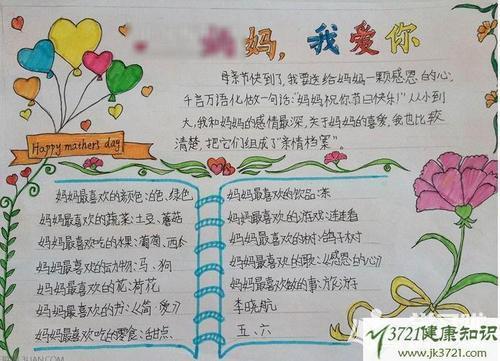 妈，我爱你
母亲节快到了，我要送给妈妈一颗感恩的心，
千言万语化做一句话："妈妈祝你节日快乐！"从小到
大，我和妈妈的感情最深，关于妈妈的喜爱，我也比较
清楚，把它们组成了"亲情档案"。
Happy mathers day
妈妈最喜欢的颜色：白色、绿色
妈妈最喜欢的蔬菜：土豆、蘑菇
妈妈最喜欢吃的水果：葡萄、西
妈妈最喜欢的动物：马、狗
妈妈最喜欢的花：荷花
妈妈最喜欢的书：《简·爱》
妈妈最喜欢吃的零食：甜点
妈妈最喜欢的饮品：茶
妈妈最喜欢的游戏：连连看
妈妈最喜欢的树：鸽子树
妈妈最喜欢的歌：《感恩的心》
妈妈最喜欢做的事：旅游
李晓航
五、六
3721健康知识
www.jk3721.com